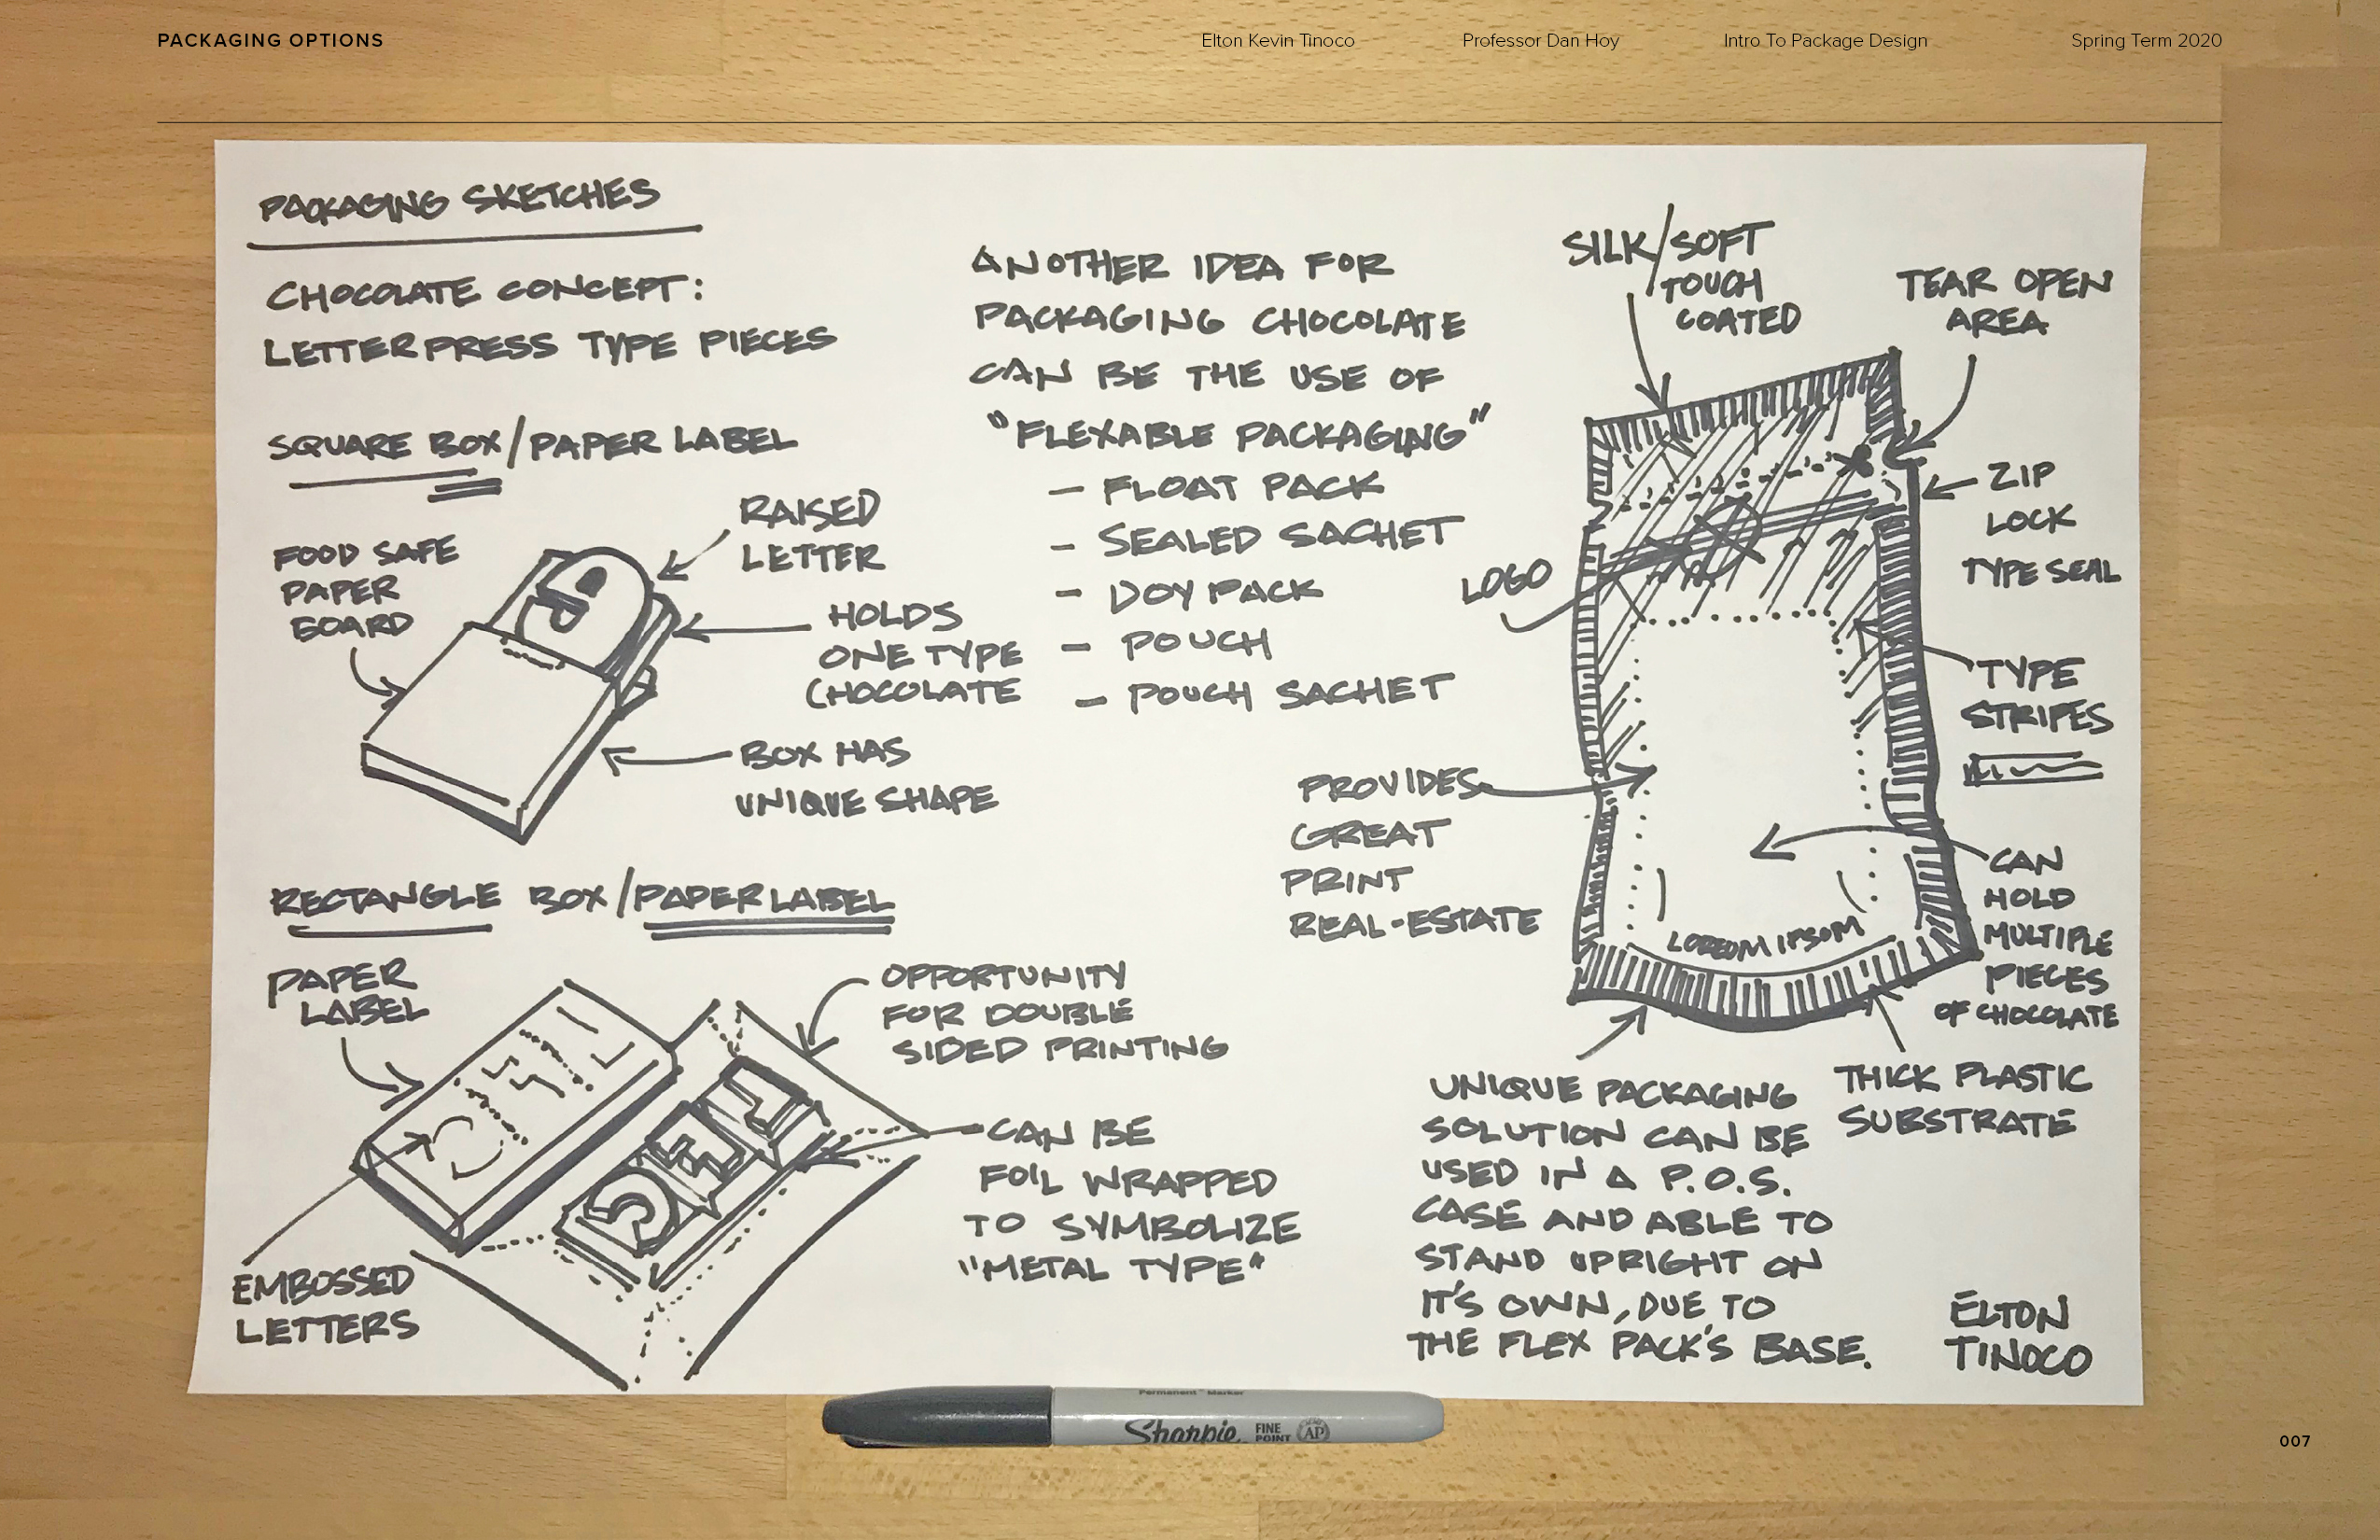 PACKAGING OPTIONS
Elton Kevin Tinoco
Professor Dan Hoy
Intro To Package Design
Spring Term 2020
PACKAGING SKETCHES
CHOCOLATE CONCEPT:
LETTERPRESS TYPE PIECES
SQUARE BOX/PAPER LABEL
FOOD SAFE
PAPER
BOARD
RAISED
LETTER
HOLDS
ONE TYPE
CHOCOLATE
BOX HAS
UNIQUE SHAPE
RECTANGLE BOX/PAPER LABEL
PAPER
LABEL
OPPORTUNITY
FOR DOUBLE
SIDED PRINTING
CAN BE
FOIL WRAPPED
TO SYMBOLIZE
"METAL TYPE"
EMBOSSED
LETTERS
ANOTHER IDEA FOR
PACKAGING CHOCOLATE
CAN BE THE USE OF
"FLEXABLE PACKAGING"
- FLOAT PACK
- SEALED SACHET
- DOY PACK
- POUCH
- POUCH SACHET
SILK/SOFT
TOUCH
COATED
TEAR OPEN
AREA
ZIP
LOCK
TYPE SEAL
LOGO
TYPE
STRIPES
PROVIDES
GREAT
PRINT
REAL-ESTATE
CAN
HOLD
MULTIPLE
PIECES
OF CHOCOLATE
LOREOM IPSOM
THICK PLASTIC
SUBSTRATE
UNIQUE PACKAGING
SOLUTION CAN BE
USED IN A P.O.S.
CASE AND ABLE TO
STAND UPRIGHT ON
IT'S OWN, DUE TO
THE FLEX PACK'S BASE.
ELTON
TINOCO
Permanent Marker
Sharpie
FINE
POINT
AP
007